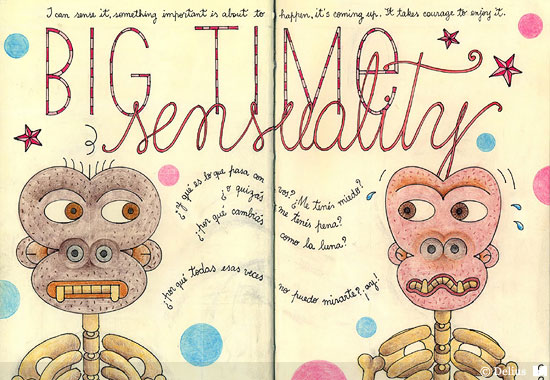 I can sense it, something important is about to happen, it's coming up. It takes courage to enjoy it.
BIG TIME
sensuality
¿y qué es lo que pasa con vos? ¿Me tenés miedo?
¿o quizás me tenés pena?
¿por qué cambiás como la luna?
¿por qué todas esas veces no puedo mirarte?, ay!
© Delius